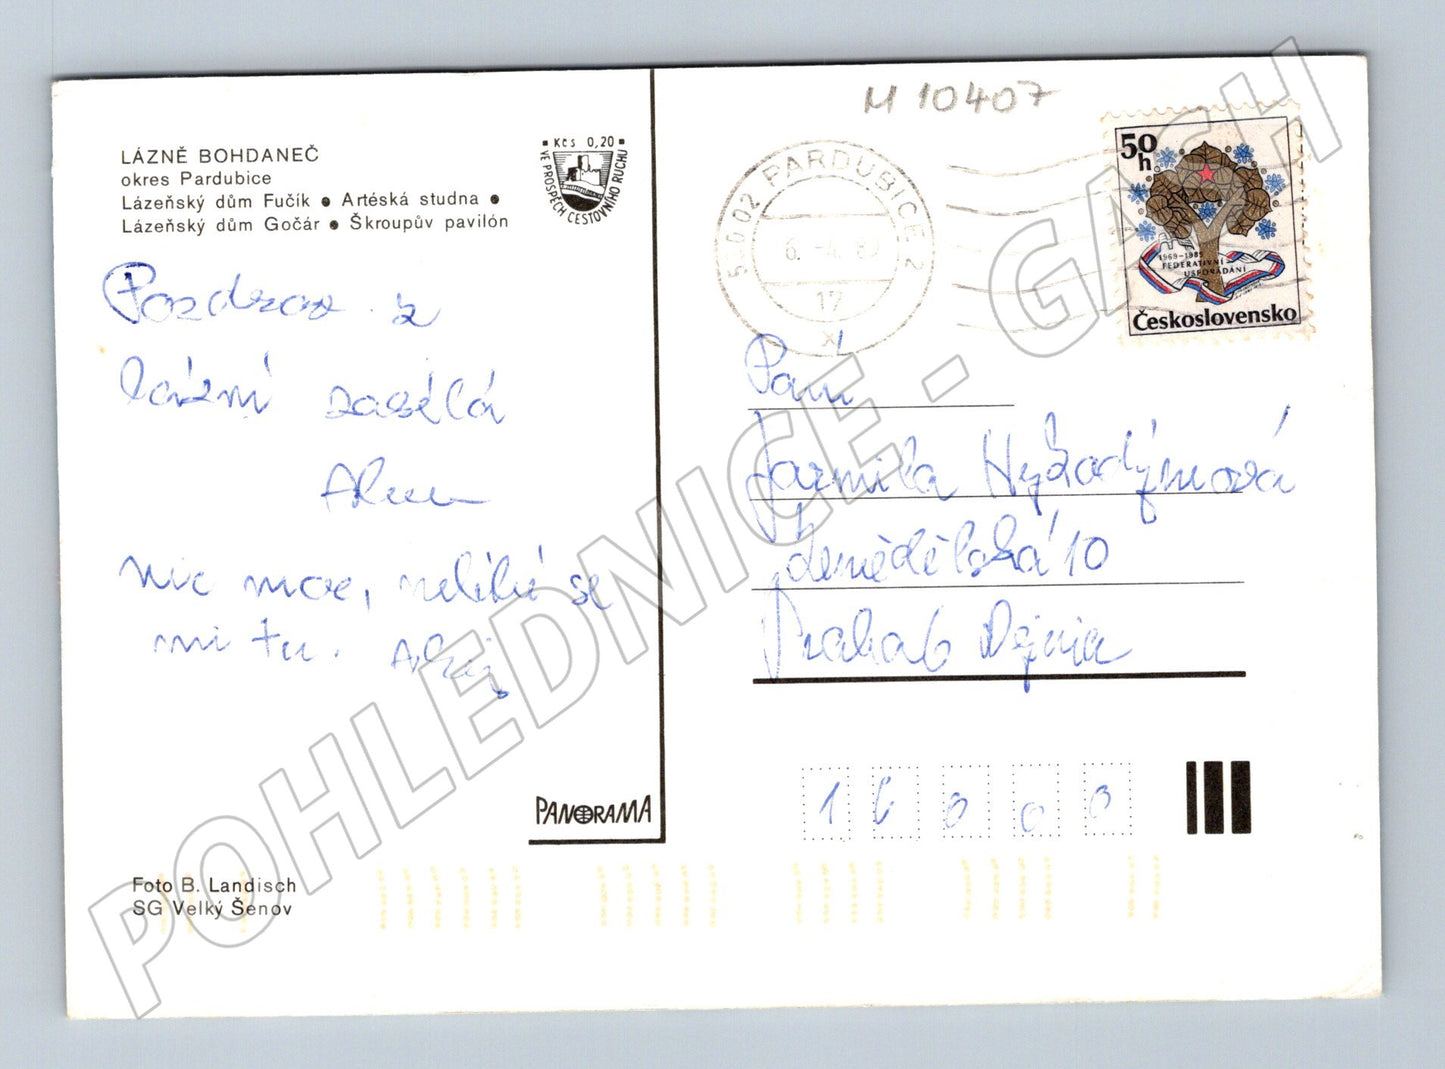 LÁZNĚ BOHDANEČ
okres Pardubice
Lázeňský dům Fučík • Artéská studna •
Lázeňský dům Gočár • Škroupův pavilón
Kčs 0,20
VE PROSPĚCH CESTOVNÍHO RUCHU
Pozdrav z
lázní zasélá
nic moc, nelíbí se
mi tu.
PANORAMA
Foto B. Landisch
SG Velký Šenov
M 10407
530 02 PARDUBICE 2
6. -4. 89
17
x
50
h
1969-1989
FEDERATIVNÍ
USPOŘÁDÁNÍ
Československo
Paní
Jarmila
Zemědělská 10
Praha 6 Dejvice
16000
POHLEDNICE - GASH